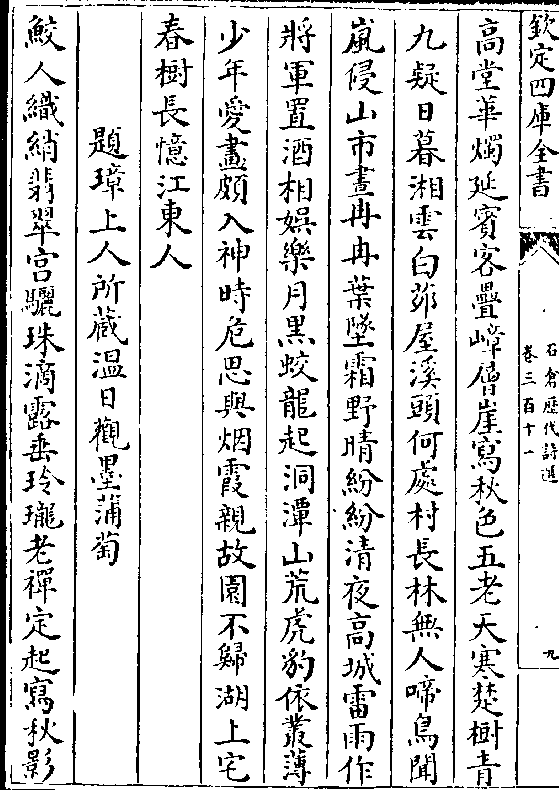 欽定四庫全書
石倉歴代詩選
卷三百十一
九
高堂華燭延賓客疊嶂層崖寫秋色五老天寒楚樹青
九疑日暮湘雲白茆屋溪頭何處村長林無人啼鳥聞
嵐侵山市晝冉冉葉墜霜野晴紛紛清夜高城雷雨作
將軍置酒相娯樂月黒蛟龍起洞潭山荒虎豹依叢薄
少年愛畫頗入神時危思與烟霞親故園不歸湖上宅
春樹長憶江東人
題璋上人所蔵温日觀墨蒲萄
鮫人織綃翡翠宫驪珠滴露垂玲瓏老禪定起寫秋影